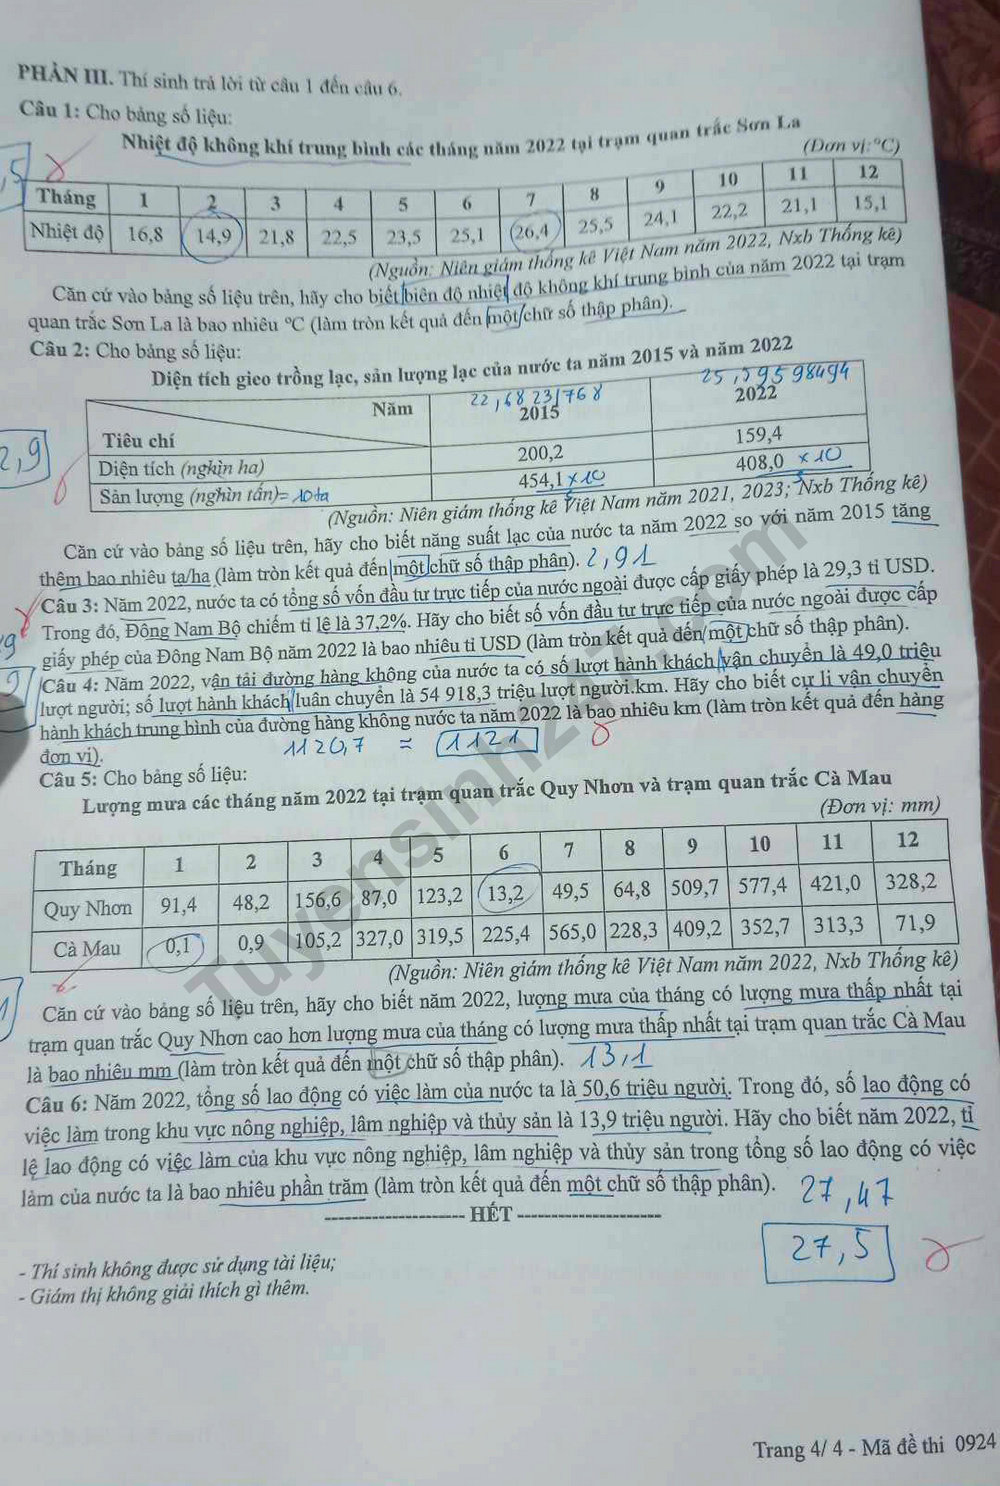 PHẦN III. Thí sinh trả lời từ câu 1 đến câu 6.
Câu 1: Cho bảng số liệu:
Nhiệt độ không khí trung bình các tháng năm 2022 tại trạm quan trắc Sơn La
(Đơn vị: °C)
Tháng 1 2 3 4 5 6 7 8 9 10 11 12
Nhiệt độ 16,8 14,9 21,8 22,5 23,5 25,1 26,4 25,5 24,1 22,2 21,1 15,1
(Nguồn: Niên giám thống kê Việt Nam năm 2022, Nxb Thống kê)
Căn cứ vào bảng số liệu trên, hãy cho biết biên độ nhiệt độ không khí trung bình của năm 2022 tại trạm
quan trắc Sơn La là bao nhiêu °C (làm tròn kết quả đến một chữ số thập phân).
Câu 2: Cho bảng số liệu:
Diện tích gieo trồng lạc, sản lượng lạc của nước ta năm 2015 và năm 2022
22,68231768 25,59598494
Năm 2015 2022
Tiêu chí
Diện tích (nghìn ha) 200,2 159,4
Sản lượng (nghìn tấn) = 10 tạ 454,1 ×10 408,0 ×10
2,9
(Nguồn: Niên giám thống kê Việt Nam năm 2021, 2023; Nxb Thống kê)
Căn cứ vào bảng số liệu trên, hãy cho biết năng suất lạc của nước ta năm 2022 so với năm 2015 tăng
thêm bao nhiêu tạ/ha (làm tròn kết quả đến một chữ số thập phân). 2,91
Câu 3: Năm 2022, nước ta có tổng số vốn đầu tư trực tiếp của nước ngoài được cấp giấy phép là 29,3 tỉ USD.
Trong đó, Đông Nam Bộ chiếm tỉ lệ là 37,2%. Hãy cho biết số vốn đầu tư trực tiếp của nước ngoài được cấp
giấy phép của Đông Nam Bộ năm 2022 là bao nhiêu tỉ USD (làm tròn kết quả đến một chữ số thập phân).
Câu 4: Năm 2022, vận tải đường hàng không của nước ta có số lượt hành khách vận chuyển là 49,0 triệu
lượt người; số lượt hành khách luân chuyển là 54 918,3 triệu lượt người.km. Hãy cho biết cự li vận chuyển
hành khách trung bình của đường hàng không nước ta năm 2022 là bao nhiêu km (làm tròn kết quả đến hàng
đơn vị). 1120,7 = 1121
Câu 5: Cho bảng số liệu:
Lượng mưa các tháng năm 2022 tại trạm quan trắc Quy Nhơn và trạm quan trắc Cà Mau
(Đơn vị: mm)
Tháng 1 2 3 4 5 6 7 8 9 10 11 12
Quy Nhơn 91,4 48,2 156,6 87,0 123,2 13,2 49,5 64,8 509,7 577,4 421,0 328,2
Cà Mau 0,1 0,9 105,2 327,0 319,5 225,4 565,0 228,3 409,2 352,7 313,3 71,9
(Nguồn: Niên giám thống kê Việt Nam năm 2022, Nxb Thống kê)
Căn cứ vào bảng số liệu trên, hãy cho biết năm 2022, lượng mưa của tháng có lượng mưa thấp nhất tại
trạm quan trắc Quy Nhơn cao hơn lượng mưa của tháng có lượng mưa thấp nhất tại trạm quan trắc Cà Mau
là bao nhiêu mm (làm tròn kết quả đến một chữ số thập phân). 13,1
Câu 6: Năm 2022, tổng số lao động có việc làm của nước ta là 50,6 triệu người. Trong đó, số lao động có
việc làm trong khu vực nông nghiệp, lâm nghiệp và thủy sản là 13,9 triệu người. Hãy cho biết năm 2022, tỉ
lệ lao động có việc làm của khu vực nông nghiệp, lâm nghiệp và thủy sản trong tổng số lao động có việc
làm của nước ta là bao nhiêu phần trăm (làm tròn kết quả đến một chữ số thập phân). 27,47
HẾT
27,5
- Thí sinh không được sử dụng tài liệu;
- Giám thị không giải thích gì thêm.
Trang 4/ 4 - Mã đề thi 0924
Tuyensinh247.com